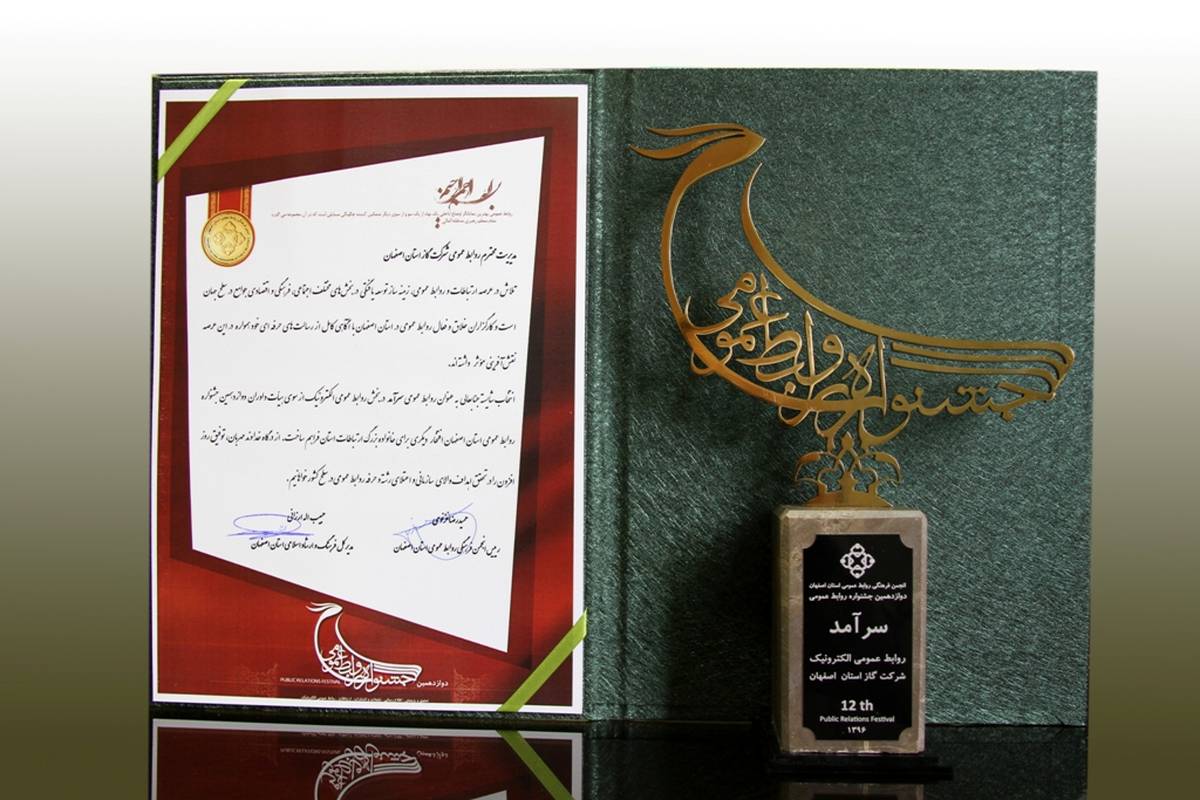 مدیریت محترم روابط عمومی شرکت گاز استان اصفهان
تلاش در عرصه ارتباطات و روابط عمومی، زمینه ساز توسعه یافتگی در بخش های مختلف اجتماعی، فرهنگی و اقتصادی جوامع در سطح جهان
است و کارگزاران خلاق و فعال روابط عمومی در استان اصفهان با آگاهی کامل از رسالت های حرفه ای خود همواره در این عرصه
نقش آفرینی موثر داشته اند.
انتخاب شایسته جنابعالی به عنوان روابط عمومی سرآمد در بخش روابط عمومی الکترونیک از سوی هیات داوران دوازدهمین جشنواره
روابط عمومی استان اصفهان افتخار دیگری برای خانواده بزرگ ارتباطات استان فراهم ساخت. از درگاه خداوند مهربان، توفیق روز
افزون را در تحقق اهداف والای سازمانی و اعتلای رشته و حرفه روابط عمومی در سطح کشور خواهانیم.
حبیب اله ارزانی
رییس انجمن فرهنگی روابط عمومی استان اصفهان
مدیر کل فرهنگ و ارشاد اسلامی استان اصفهان
جشنواره روابط عمومی
دوازدهمین
PUBLIC RELATIONS FESTIVAL
جشنواره روابط عمومی
انجمن فرهنگی روابط عمومی استان اصفهان
دوازدهمین جشنواره روابط عمومی
سرآمد
روابط عمومی الکترونیک
شرکت گاز استان اصفهان
12 th
Public Relations Festival
۱۳۹۶